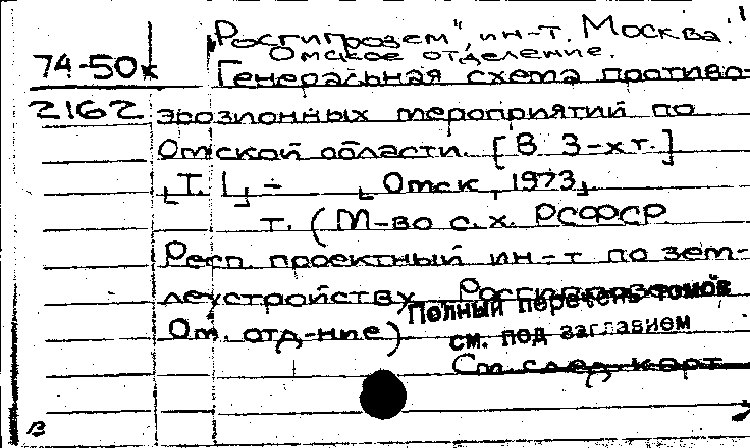 "Росгипрозем", ин-т. Москва.
Омское отделение.
74-50к
Генеральная схема противо-
2162 эрозионных мероприятий по
Омской области. [В 3-х т.]
[Т. 1] - [Омск, 1973].
т. (М-во с. х. РСФСР.
Респ. проектный ин-т по зем-
леустройству Росгипрозем
Ом. отд-ние)
Полный перечень томов
см. под заглавием
См. след. карт.
в